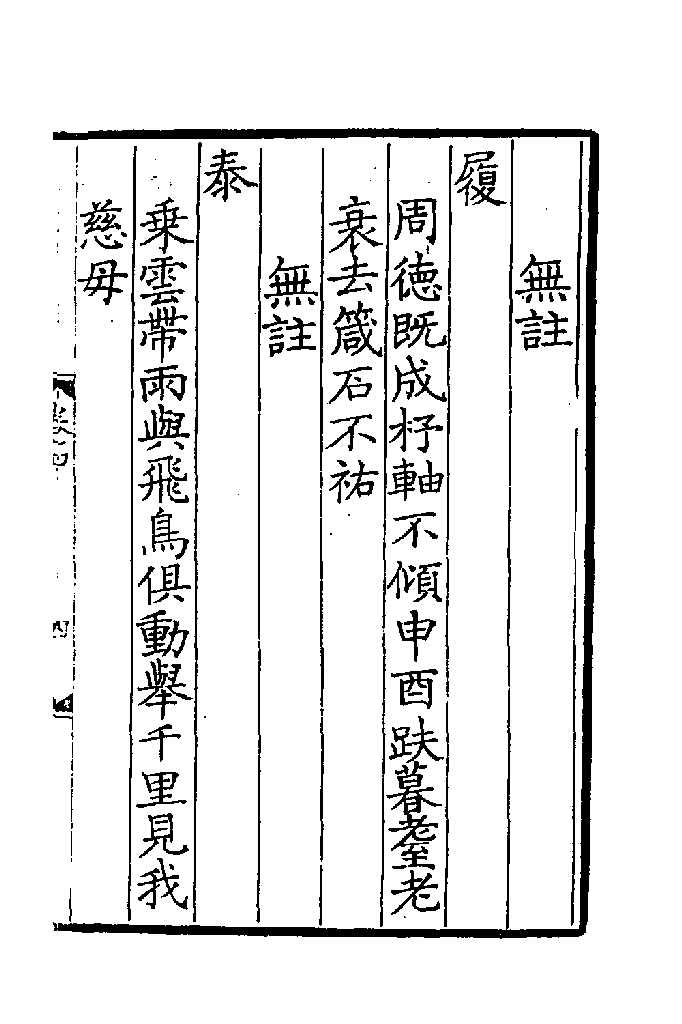 無註
履
周德既成杼軸不傾申酉趺暮耋老
衰去箴石不祐
無註
泰
乗雲帶雨與飛鳥俱動舉千里見我
慈母
四